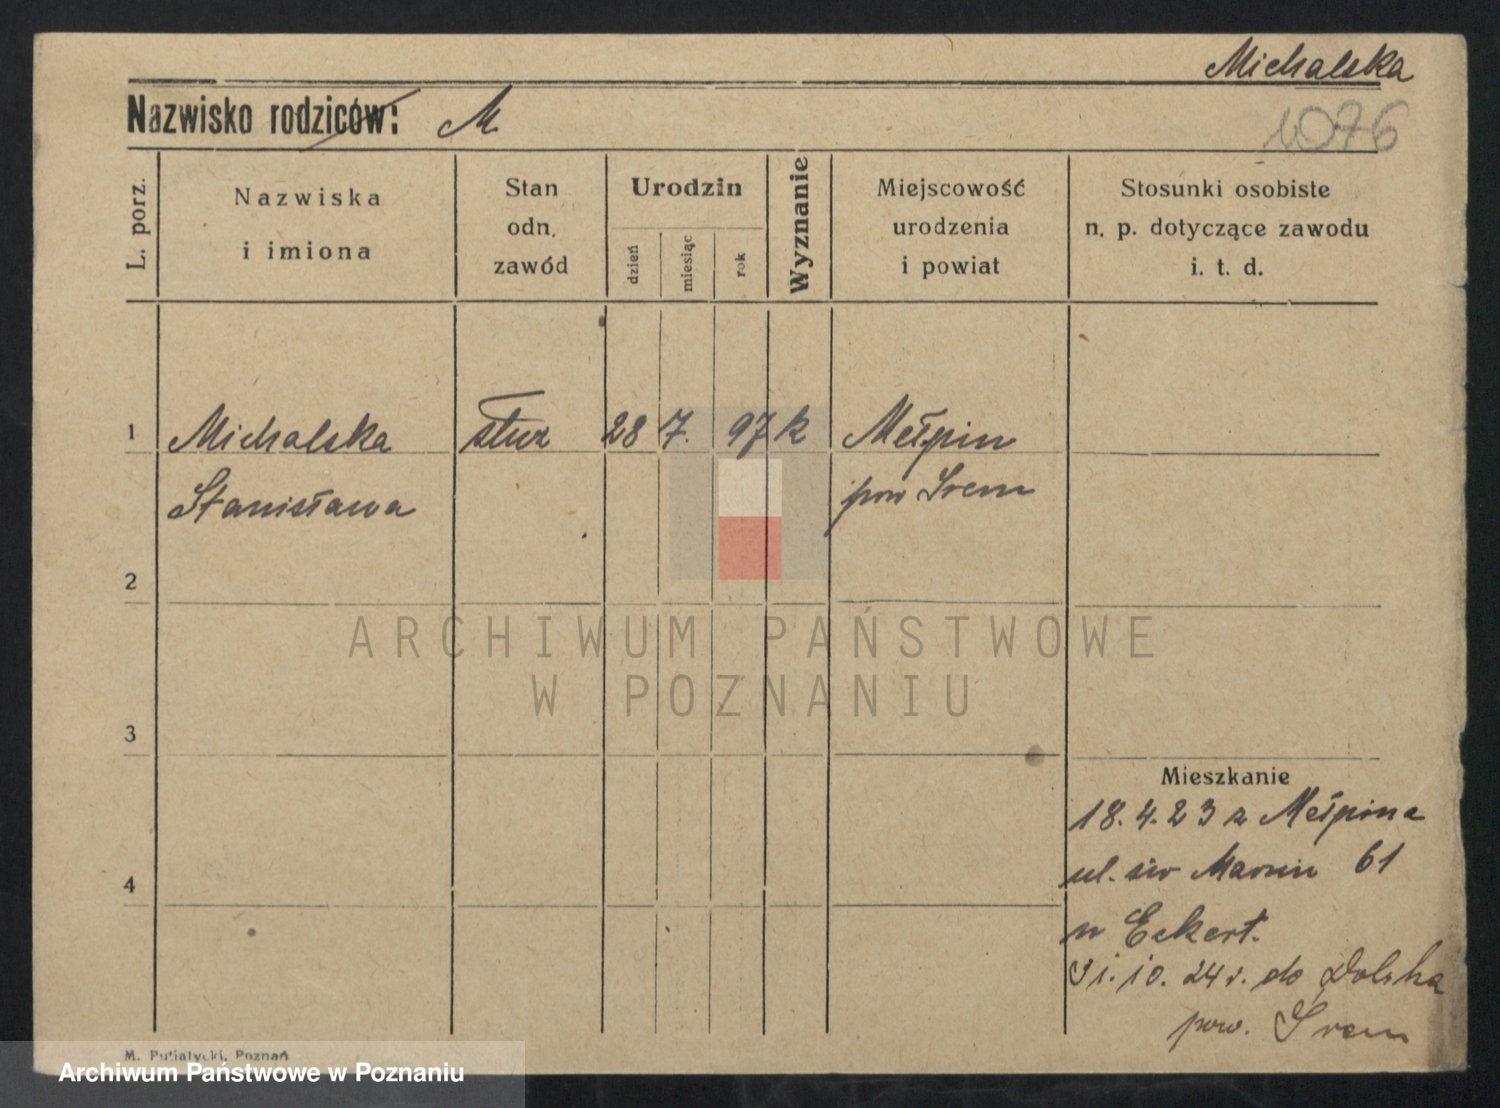 Michalska
1076
Nazwisko rodziców: M
L. porz.
Nazwiska
i imiona
Stan
odn.
zawód
Urodzin
dzień
miesiąc
rok
Wyznanie
Miejscowość
urodzenia
i powiat
Stosunki osobiste
n. p. dotyczące zawodu
i. t. d.
1 Michalska służ 28 7. 97 k Mełpin
Stanisława pow Śrem
2
ARCHIWUM PAŃSTWOWE
W POZNANIU
3
Mieszkanie
18.4.23 z Mełpina
4
ul. św Marcin 61
u Eckert.
31.10.24 r. do Dolska
pow. Śrem
M. Putiatycki, Poznań
Archiwum Państwowe w Poznaniu